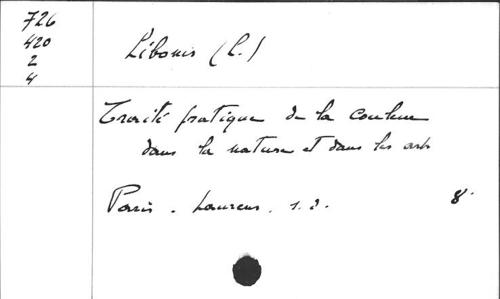 726
420
2
4
Libonis (L.)
Traité pratique de la couleur
dans la nature et dans les arts
Paris. Laurens. s.d. 8°